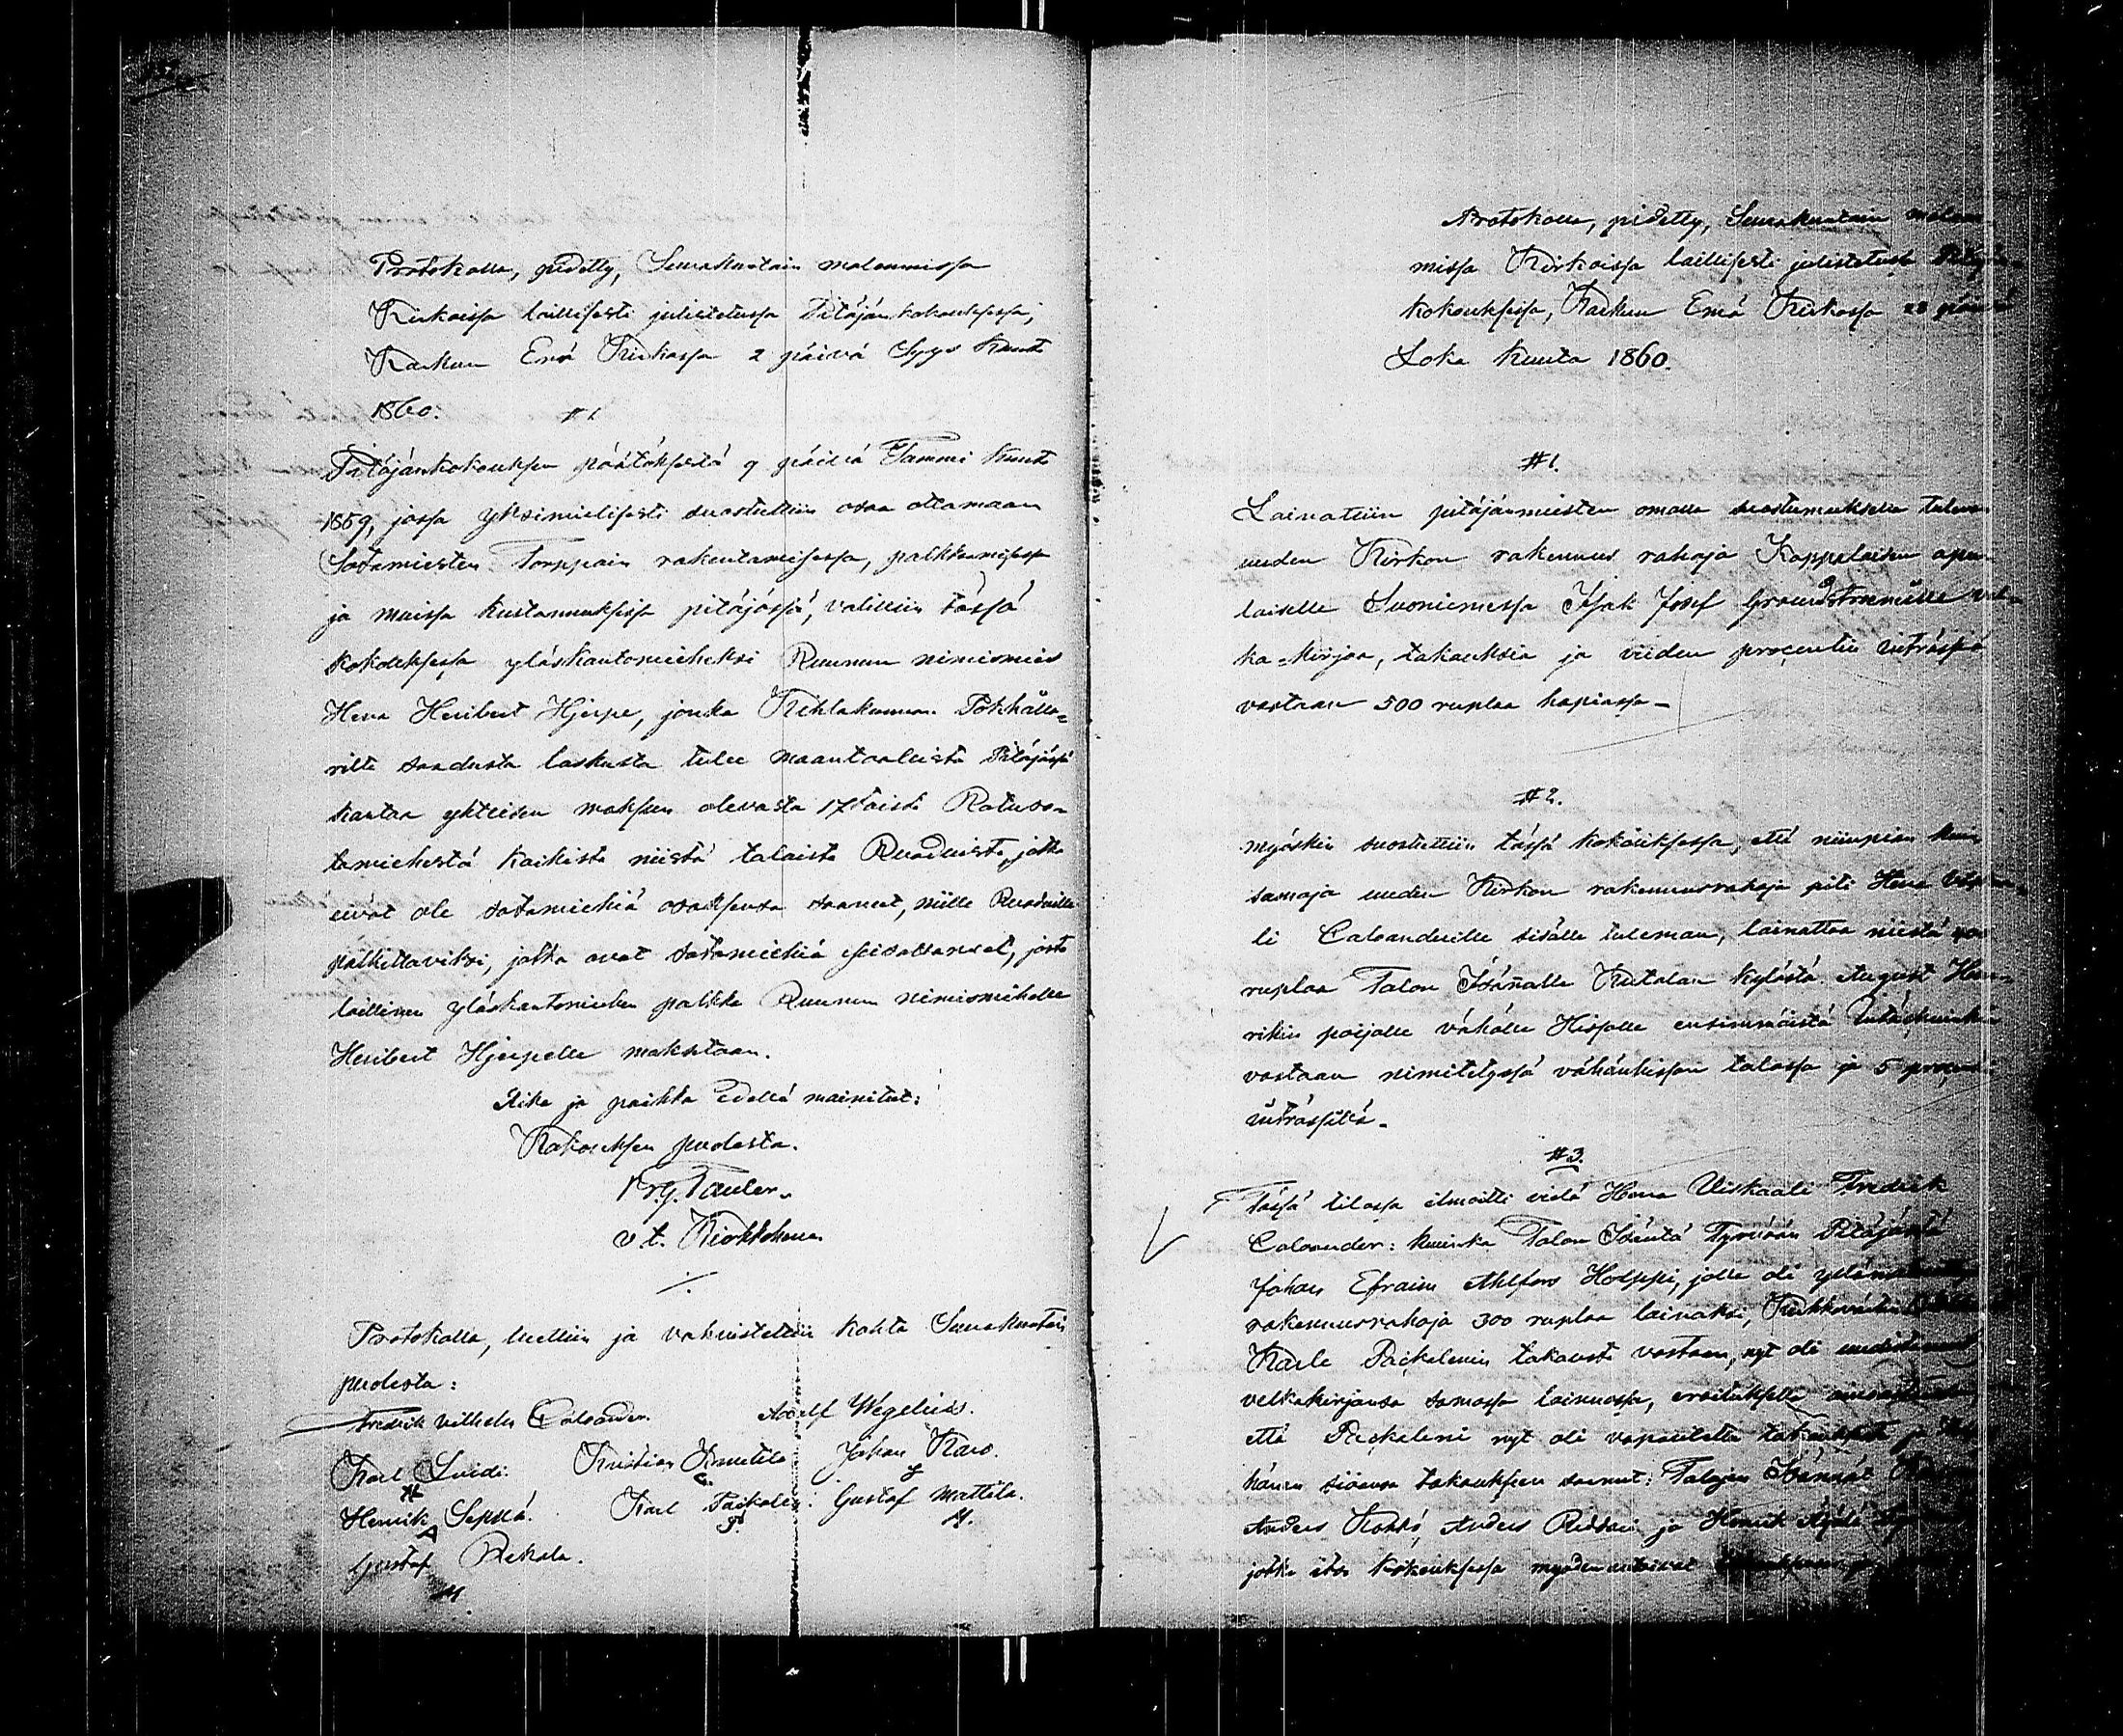 Protokolla, pidetty, Seurakuntain molemmissa
Kirkoissa laillisesti julistetussa Pitäjänkokouksessa,
Karkun Emä Kirkossa 2 päivä Syys Kuuta
1860.
# 1
Pitäjänkokouksen päätöksestä 9 päivä Tammi Kuuta
1859, jossa yksimielisesti suostuttiin osaa ottamaan
Sotamiesten Torppain rakentamisessa, palkkaamisessa
ja muissa kustannuksissa pitäjässä, valittiin tässä
kokouksessa yläskantomieheksi Ruunun nimismies
Herra Heribert Hjerpe, jonka Kihlakunnan
rilta saadusta laskusta tulee maantaalista Pitäjässä
kantaa yhteisen maksun olevasta 17 taista Ratuso-
tamiehestä kaikista niistä taloista Ruoduista, jotka
eivät ole sotamiehiä osaksensa saanet, niille Ruoduille
palkittaviksi, jotka ovat sotamiehiä, josta
laillinen yläskantomiehen palkka Ruunun nimismiehelle
Heribert Hjerpelle maksetaan.
Aika ja paikka edellä mainitut:
Kokouksen puolesta.
Fr. G. Tauler.
v. t. Kirkkoherra
Protokolla, luettiin ja vahvistettiin kohta Seurakuntain
puolesta:
Fredrik Vilhelm Caloander. Adolf Wegelius.
Karl Luidi. Kristian Knuutila Johan Karo.
Henrik Seppä. Karl Paikalen. Gustaf Mattila.
Gustaf Rekola.
Protokolla, pidetty, Seurakuntain molem
missa Kirkoissa laillisesti julistetussa Pitäjän
kokouksessa, Karkun Emä Kirkossa 28 päivä
Loka Kuuta 1860.
# 1.
Lainattiin pitäjänmiesten omalla suostumuksella tulevan
uuden Kirkon rakennus rahoja Kappalaisen apu
laiselle Suoniemessa Isak Josef Grandströmille vel-
ka-kirjaa, takauksia ja viiden procentin intrássiä
vastaan 500 ruplaa hopiassa -
# 2.
myöskin suostuttiin tässä kokouksessa, että niinpian kun
samoja uuden Kirkon rakennusrahoja piti Herra
li Caloanderille sisälle tuleman, lainattaa niistä
ruplaa Talon Isännälle Kutalan kylästä August Hen-
rikin pojalle vähälle Hissalle ensimmäistä
vastaan nimitetyssä vähänhissan talossa ja 5 procen
intrássillä.
# 3.
Tässä tilassa ilmoitti vielä Herra Viskaali Fredrick
Caloander: kuinka Talon Isäntä Tyrvään Pitäjästä
Johan Efraim Ahlfors Holppi, jolle oli
rakennusrahoja 300 ruplaa lainaksi,
Kaarle Paikalenin takausta vastaan, nyt oli uudistanut
velkakirjansa samassa lainuassa,
että Paikaleni nyt oli vapautettu takauksesta ja
hänen siaansa takauksen saanut: Talojen Isännät
Anders Kokko, Anders Riddari ja Henrik
jotka itse kokouksessa myöden antoivat